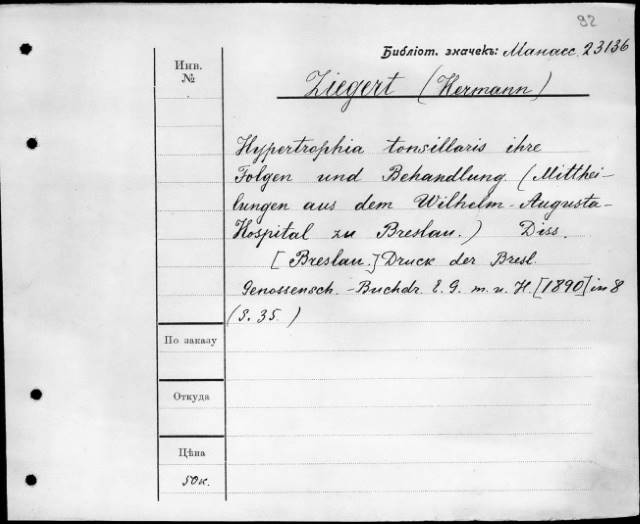 92
Библіот. значекъ: Манасс. 23136
Инв.
№
Ziegert (Hermann)
Hypertrophia tonsillaris ihre
Folgen und Behandlung (Mitthei-
lungen aus dem Wilhelm-Augusta-
Hospital zu Breslau.) Diss.
[Breslau.] Druck der Bresl.
Genossensch.-Buchdr. E. G. m. u. H. [1890] in 8
(S. 35)
По заказу
Откуда
Цѣна
50к.